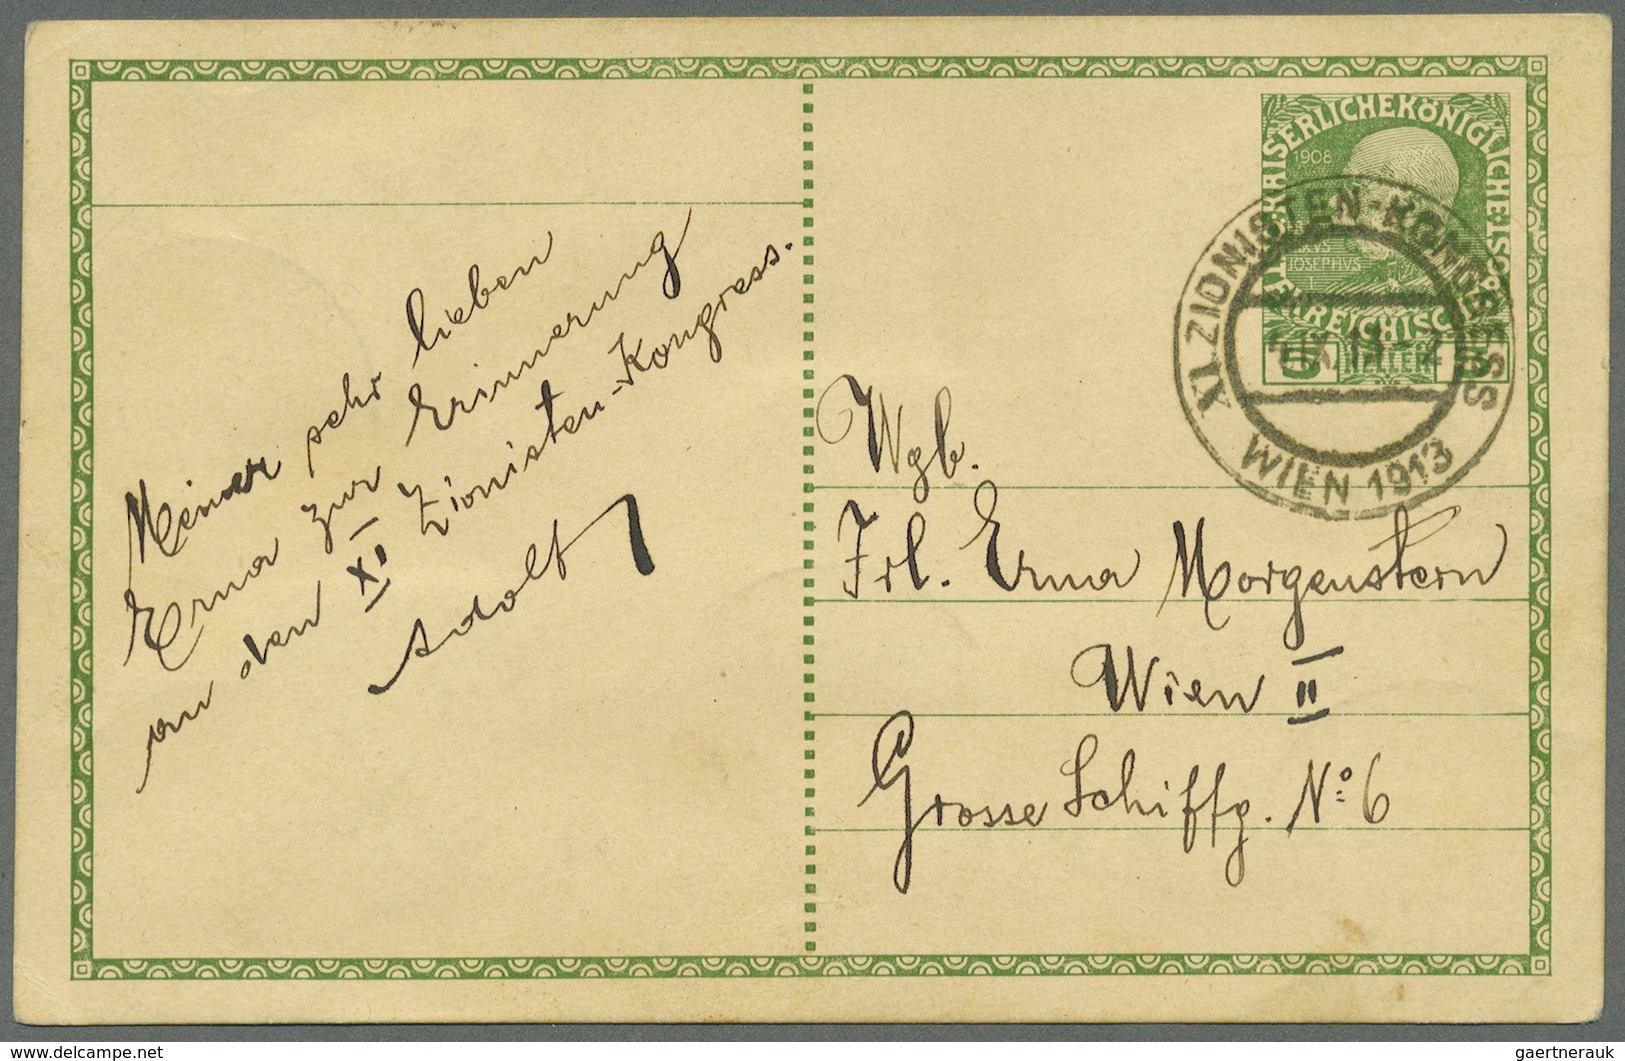 Meiner sehr lieben
Erna zur Erinnerung
an den XI. Zionisten-Kongress.
Adolf
KAISERLICHE KÖNIGLICHE
1908
JOSEPHVS
ÖSTERREICHISCHE
HELLER
XI. ZIONISTEN-KONGRESS
WIEN 1913
Wgb.
Frl. Erna Morgenstern
Wien II
Grosse Schiffg. No 6
www.delcampe.net
gaertnerauk